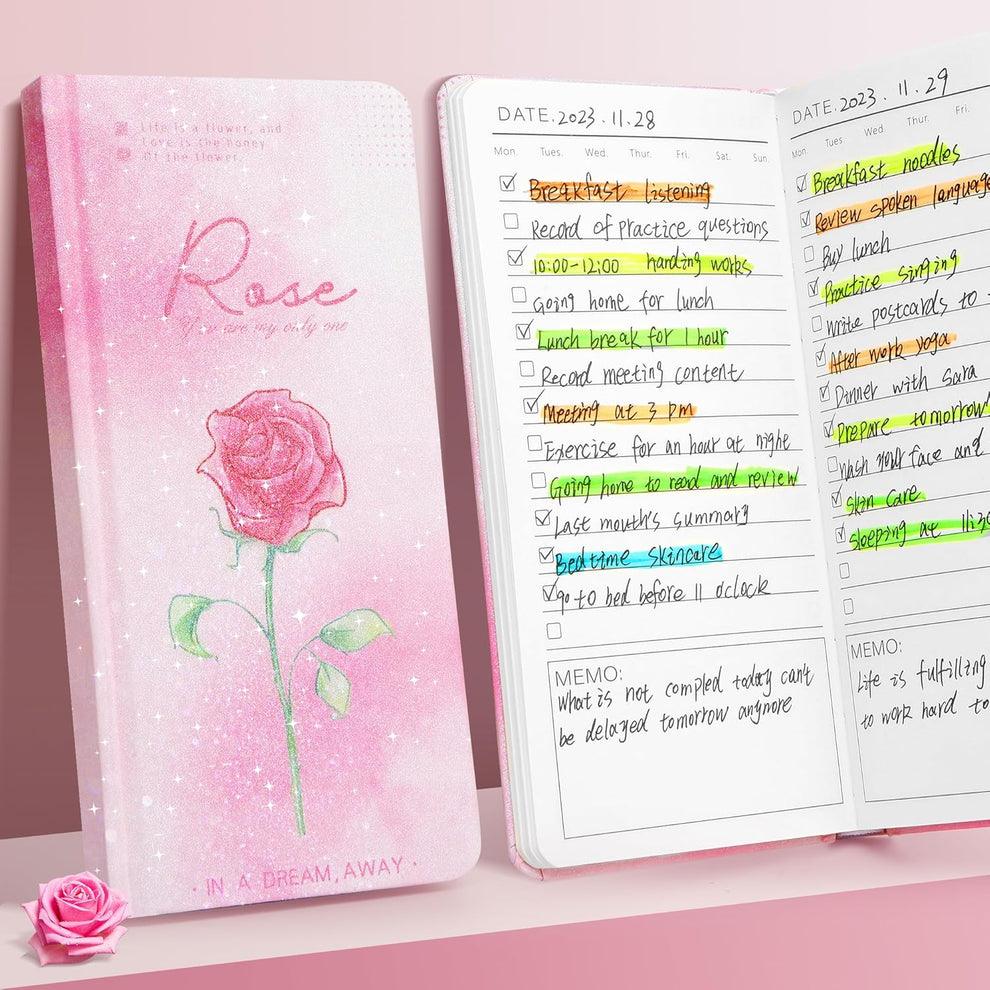 Life is a flower, and
Love is the honey
of the flower.
Rose
You are my only one
· IN A DREAM, AWAY ·
DATE. 2023. 11. 28
Mon. Tues. Wed. Thur. Fri. Sat. Sun.
Breakfast listening
Record of practice questions
10:00-12:00 harding works
Going home for lunch
Lunch break for 1 hour
Record meeting content
Meeting at 3 pm
Exercise for an hour at night
Going home to read and review
Last mouth's summary
Bedtime skincare
go to bed before 11 o'clock
MEMO:
What is not compled today can't
be delayed tomorrow anynore
DATE. 2023. 11. 29
Mon. Tues Wed. Thur. Fri.
Breakfast noodles
Review spoken language
Buy lunch
Practice singing
Write postcards to
After work yoga
Dinner with Sara
Prepare tomorrow'
wash your face and
Skin care
Sleeping at 11:30
MEMO:
Life is fulfilling
to work hard to